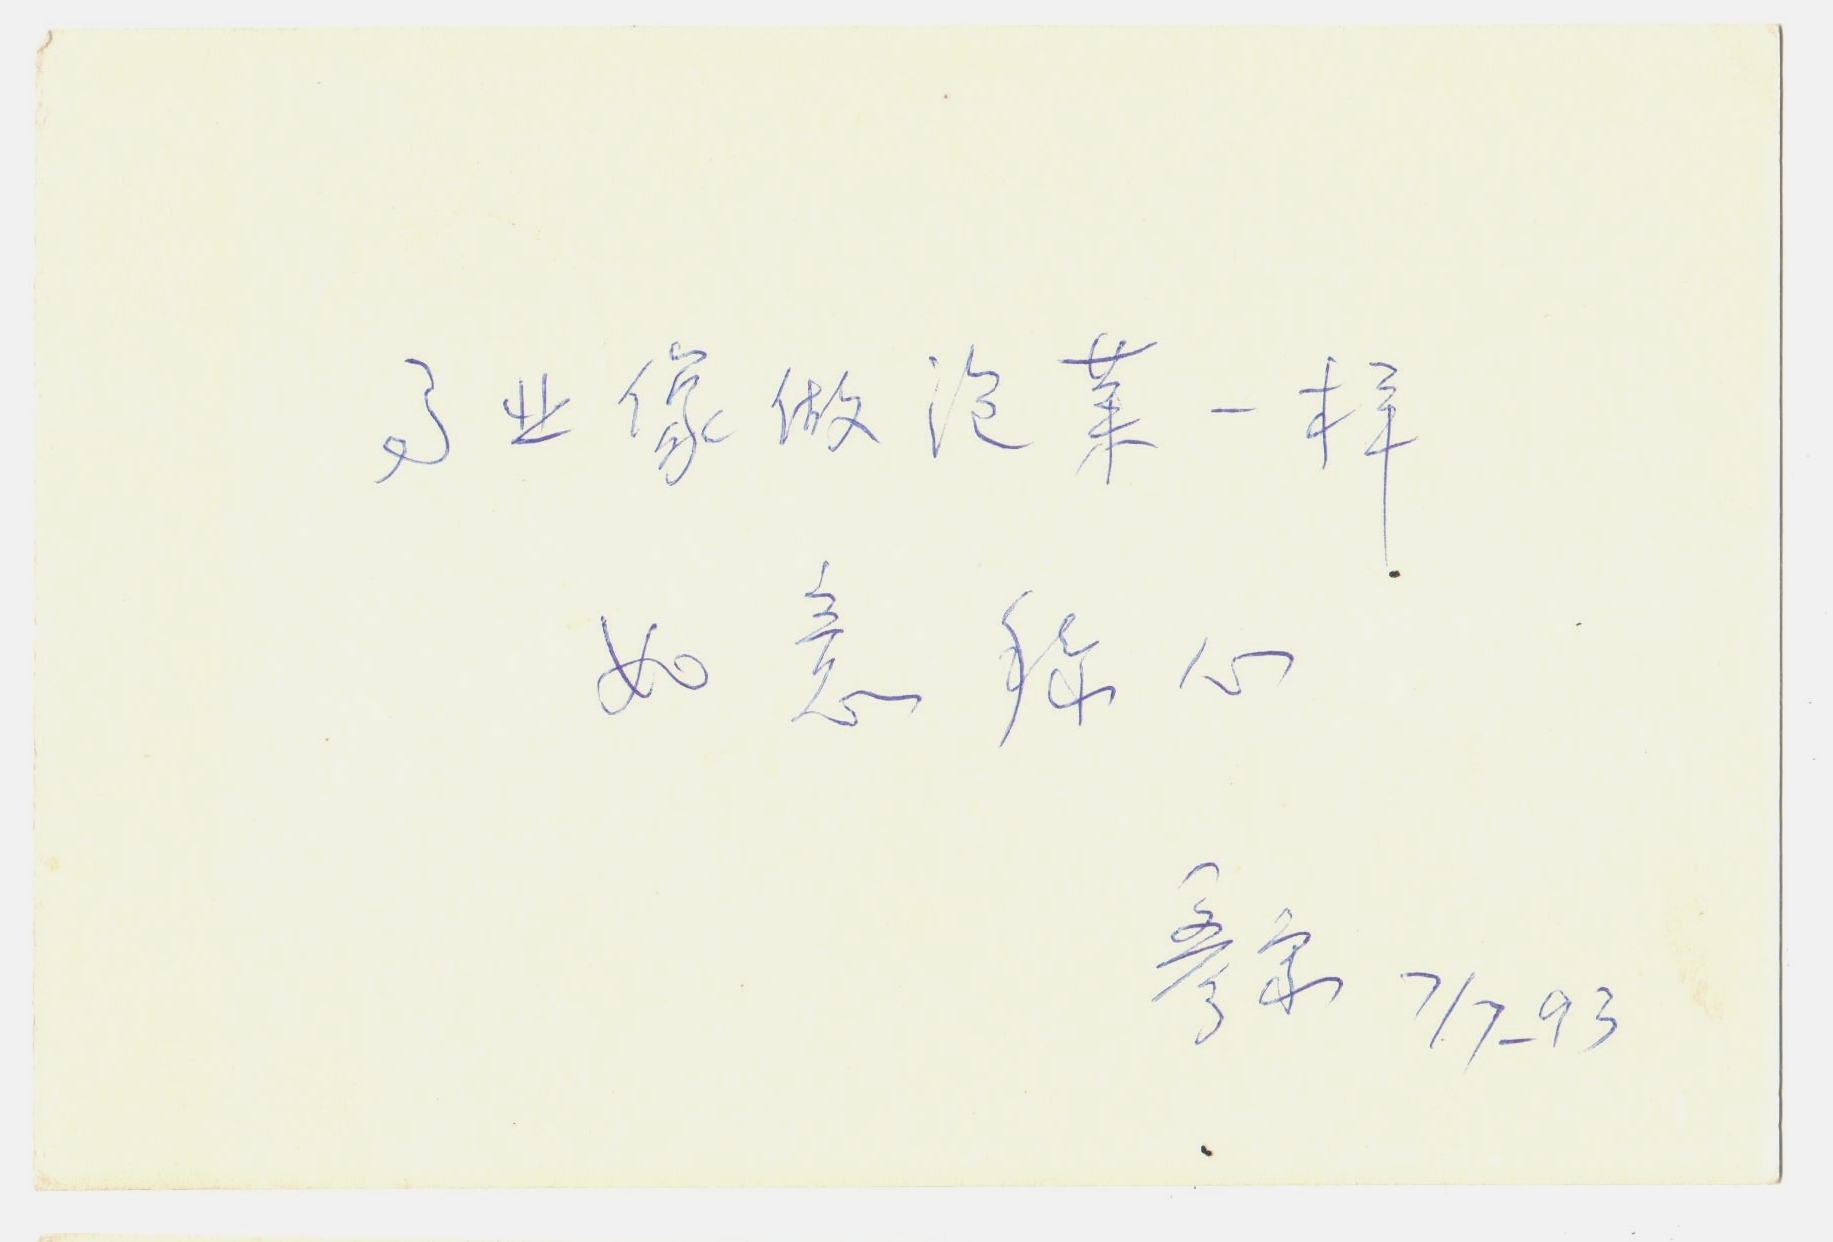 事业像做泡菜一样
如意称心
7/7-93